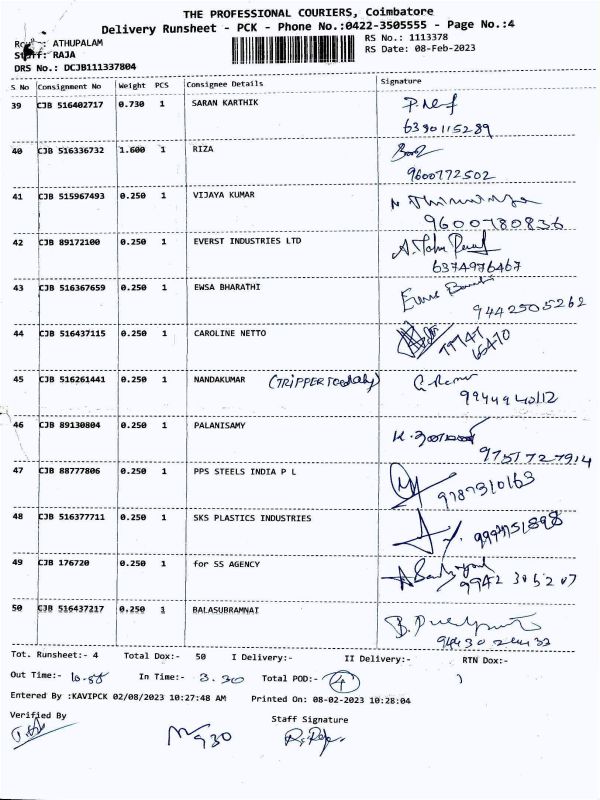 THE PROFESSIONAL COURIERS, Coimbatore
Delivery Runsheet - PCK - Phone No.:0422-3505555 - Page No.:4
ATHUPALAM
RS No.: 1113378
RS Date: 08-Feb-2023
Staff: RAJA
DRS No.: DCJB111337804
S No Consignment No Weight PCS Consignee Details Signature
39 CJB 516402717 0.730 1 SARAN KARTHIK
6380115289
40 CJB 516336732 1.600 1 RIZA
9600772502
41 CJB 515967493 0.250 1 VIJAYA KUMAR
9600780836
42 CJB 89172100 0.250 1 EVERST INDUSTRIES LTD
6374976467
43 CJB 516367659 0.250 1 EWSA BHARATHI
9442505262
44 CJB 516437115 0.250 1 CAROLINE NETTO
45 CJB 516261441 0.250 1 NANDAKUMAR
9944940112
46 CJB 89130804 0.250 1 PALANISAMY
9751727914
47 CJB 88777806 0.250 1 PPS STEELS INDIA P L
9787310163
48 CJB 516377711 0.250 1 SKS PLASTICS INDUSTRIES
49 CJB 176720 0.250 1 for SS AGENCY
9942 305207
50 CJB 516437217 0.250 1 BALASUBRAMNAI
Tot. Runsheet:- 4 Total Dox:- 50 I Delivery:- II Delivery:- RTN Dox:-
Out Time:- In Time:- 3.30 Total POD:- 4
Entered By :KAVIPCK 02/08/2023 10:27:48 AM Printed On: 08-02-2023 10:28:04
Verified By Staff Signature
930